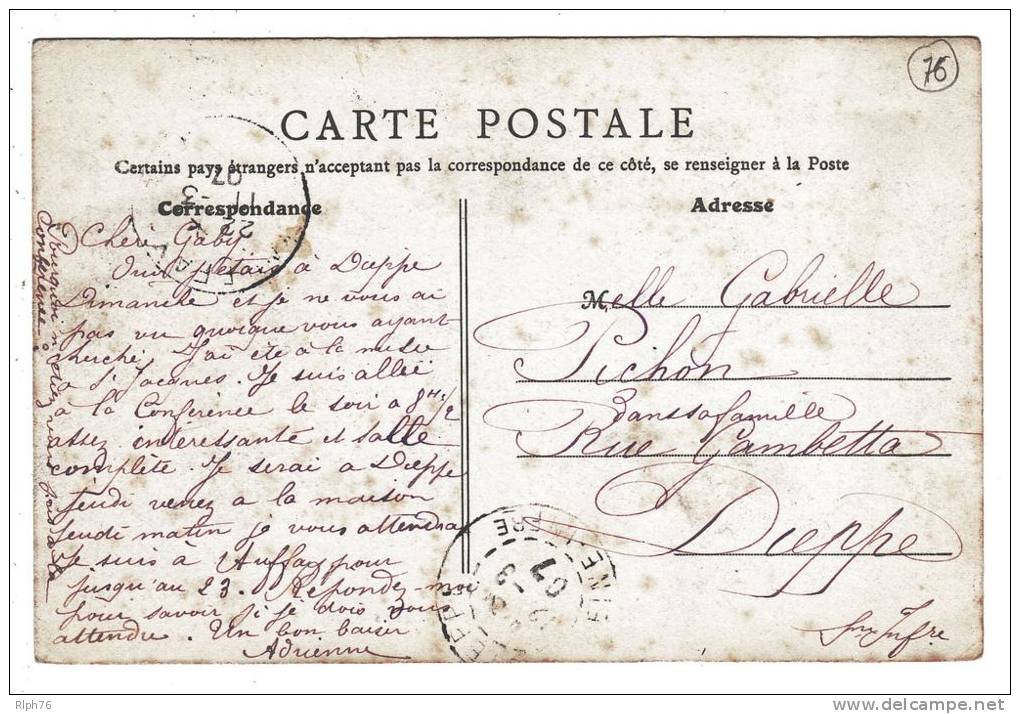 76
CARTE POSTALE
Certains pays étrangers n'acceptant pas la correspondance de ce côté, se renseigner à la Poste
Correspondance
Chère Gaby
Oui j'étais à Dieppe
Dimanche et je ne vous ai
pas vu quoique vous ayant
cherché. J'ai été à la messe
à St Jacques. Je suis allée
à la Conférence le soir à 8Hs1/2
assez intéressante et salle
complète. Je serai à Dieppe
jeudi venez à la maison
jeudi matin je vous attendrai
Je suis à Auffay pour
jusqu'au 23. Répondez-moi
pour savoir si je dois vous
attendre. Un bon baiser
Adrienne
Pourquoi n'étiez vous pas à la
Conférence?
Adresse
Melle Gabrielle
Pichon
dans sa famille
Rue Gambetta
Dieppe
Sne Infre
DIEPPE
07
Rlph76
delcampe.net